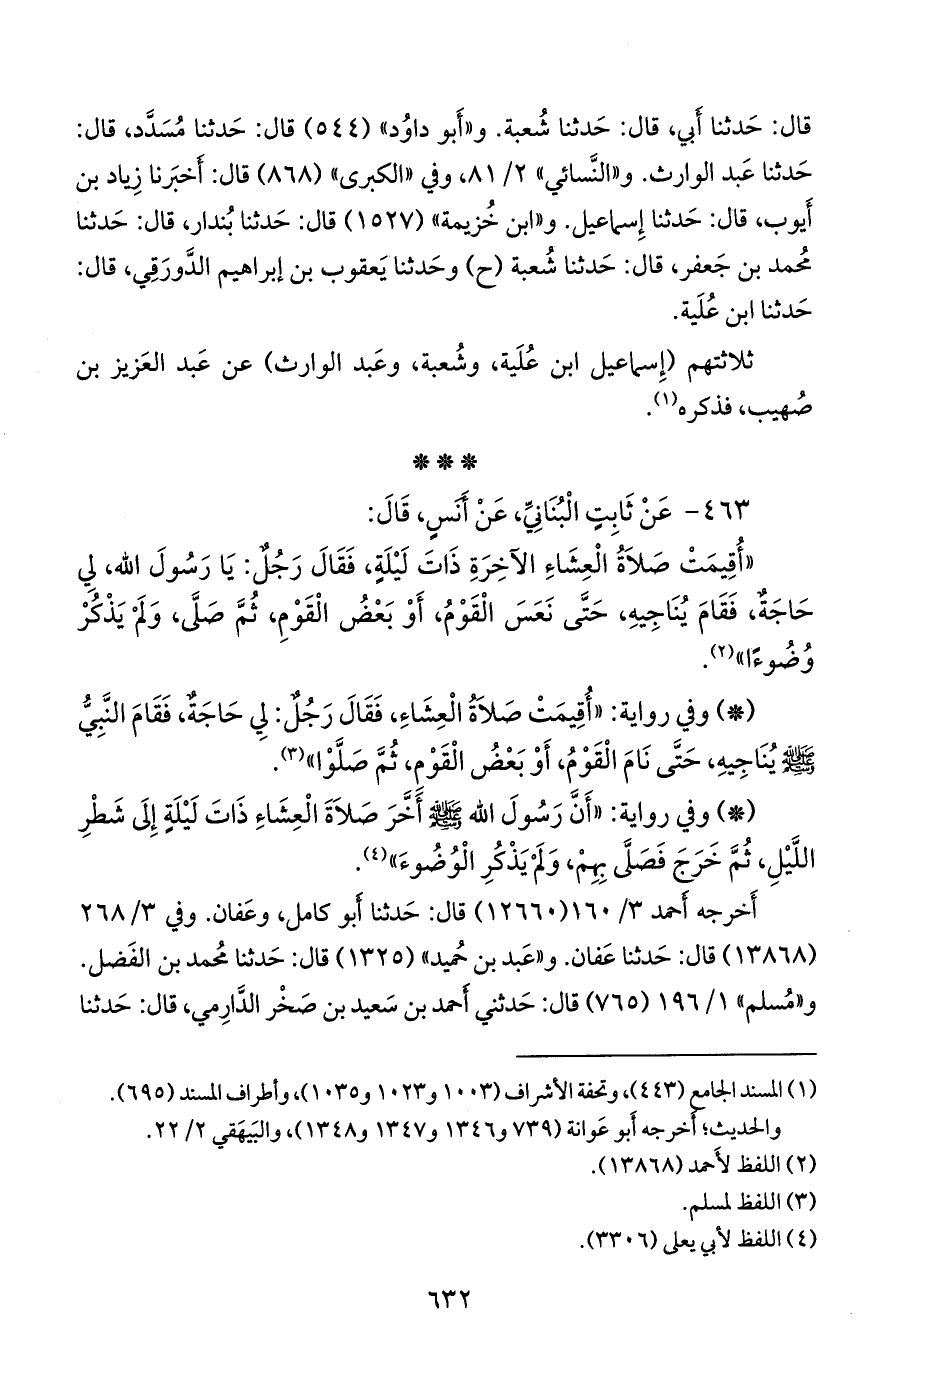 قال: حَدثنا أَبي، قال: حَدثنا شُعبة. و«أَبو داوُد» (٥٤٤) قال: حَدثنا مُسَدَّد، قال:
حَدثنا عَبد الوارث. و«النَّسائي» ٢/ ٨١، وفي «الكبرى» (٨٦٨) قال: أَخبَرنا زِياد بن
أَيوب، قال: حَدثنا إِسماعيل. و«ابن خُزيمة» (١٥٢٧) قال: حَدثنا بُندار، قال: حَدثنا
مُحمد بن جَعفر، قال: حَدثنا شُعبة (ح) وحَدثنا يَعقوب بن إبراهيم الدَّورَقِي، قال:
حَدثنا ابن عُلَية.
ثلاثتهم (إِسماعيل ابن عُلَية، وشُعبة، وعَبد الوارث) عن عَبد العَزيز بن
صُهيب، فذكره(١).
* * *
٤٦٣- عَنْ ثَابِتٍ الْبُنَانِيِّ، عَنْ أَنَسٍ، قَالَ:
«أُقِيمَتْ صَلاَةُ الْعِشَاءِ الآخِرَةِ ذَاتَ لَيْلَةٍ، فَقَالَ رَجُلٌ: يَا رَسُولَ الله، لِي
حَاجَةٌ، فَقَامَ يُنَاجِيهِ، حَتَّى نَعَسَ الْقَوْمُ، أَوْ بَعْضُ الْقَوْمِ، ثُمَّ صَلَّى، وَلَمْ يَذْكُرْ
وُضُوءًا»(٢).
(*) وفي رواية: «أُقِيمَتْ صَلاَةُ الْعِشَاءِ، فَقَالَ رَجُلٌ: لِي حَاجَةٌ، فَقَامَ النَّبِيُّ
ﷺ يُنَاجِيهِ، حَتَّى نَامَ الْقَوْمُ، أَوْ بَعْضُ الْقَوْمِ، ثُمَّ صَلَّوْا»(٣).
(*) وفي رواية: «أَنَّ رَسُولَ الله ﷺ أَخَّرَ صَلاَةَ الْعِشَاءِ ذَاتَ لَيْلَةٍ إِلَى شَطْرِ
اللَّيْلِ، ثُمَّ خَرَجَ فَصَلَّى بِهِمْ، وَلَمْ يَذْكُرِ الْوُضُوءَ»(٤).
أَخرجه أَحمد ٣/ ١٦٠(١٢٦٦٠) قال: حَدثنا أَبو كامل، وعَفان. وفي ٣/ ٢٦٨
(١٣٨٦٨) قال: حَدثنا عَفان. و«عَبد بن حُميد» (١٣٢٥) قال: حَدثنا مُحمد بن الفَضل.
و«مُسلم» ١/ ١٩٦ (٧٦٥) قال: حَدثني أَحمد بن سَعيد بن صَخْر الدَّارِمي، قال: حَدثنا
(١) المسند الجامع (٤٤٣)، وتحفة الأشراف (١٠٠٣ و١٠٢٣ و١٠٣٥)، وأطراف المسند (٦٩٥).
والحديث؛ أخرجه أبو عَوانة (٧٣٩ و١٣٤٦ و١٣٤٧ و١٣٤٨)، والبَيهَقي ٢/ ٢٢.
(٢) اللفظ لأَحمد (١٣٨٦٨).
(٣) اللفظ لمسلم.
(٤) اللفظ لأَبي يعلى (٣٣٠٦).
٦٣٢